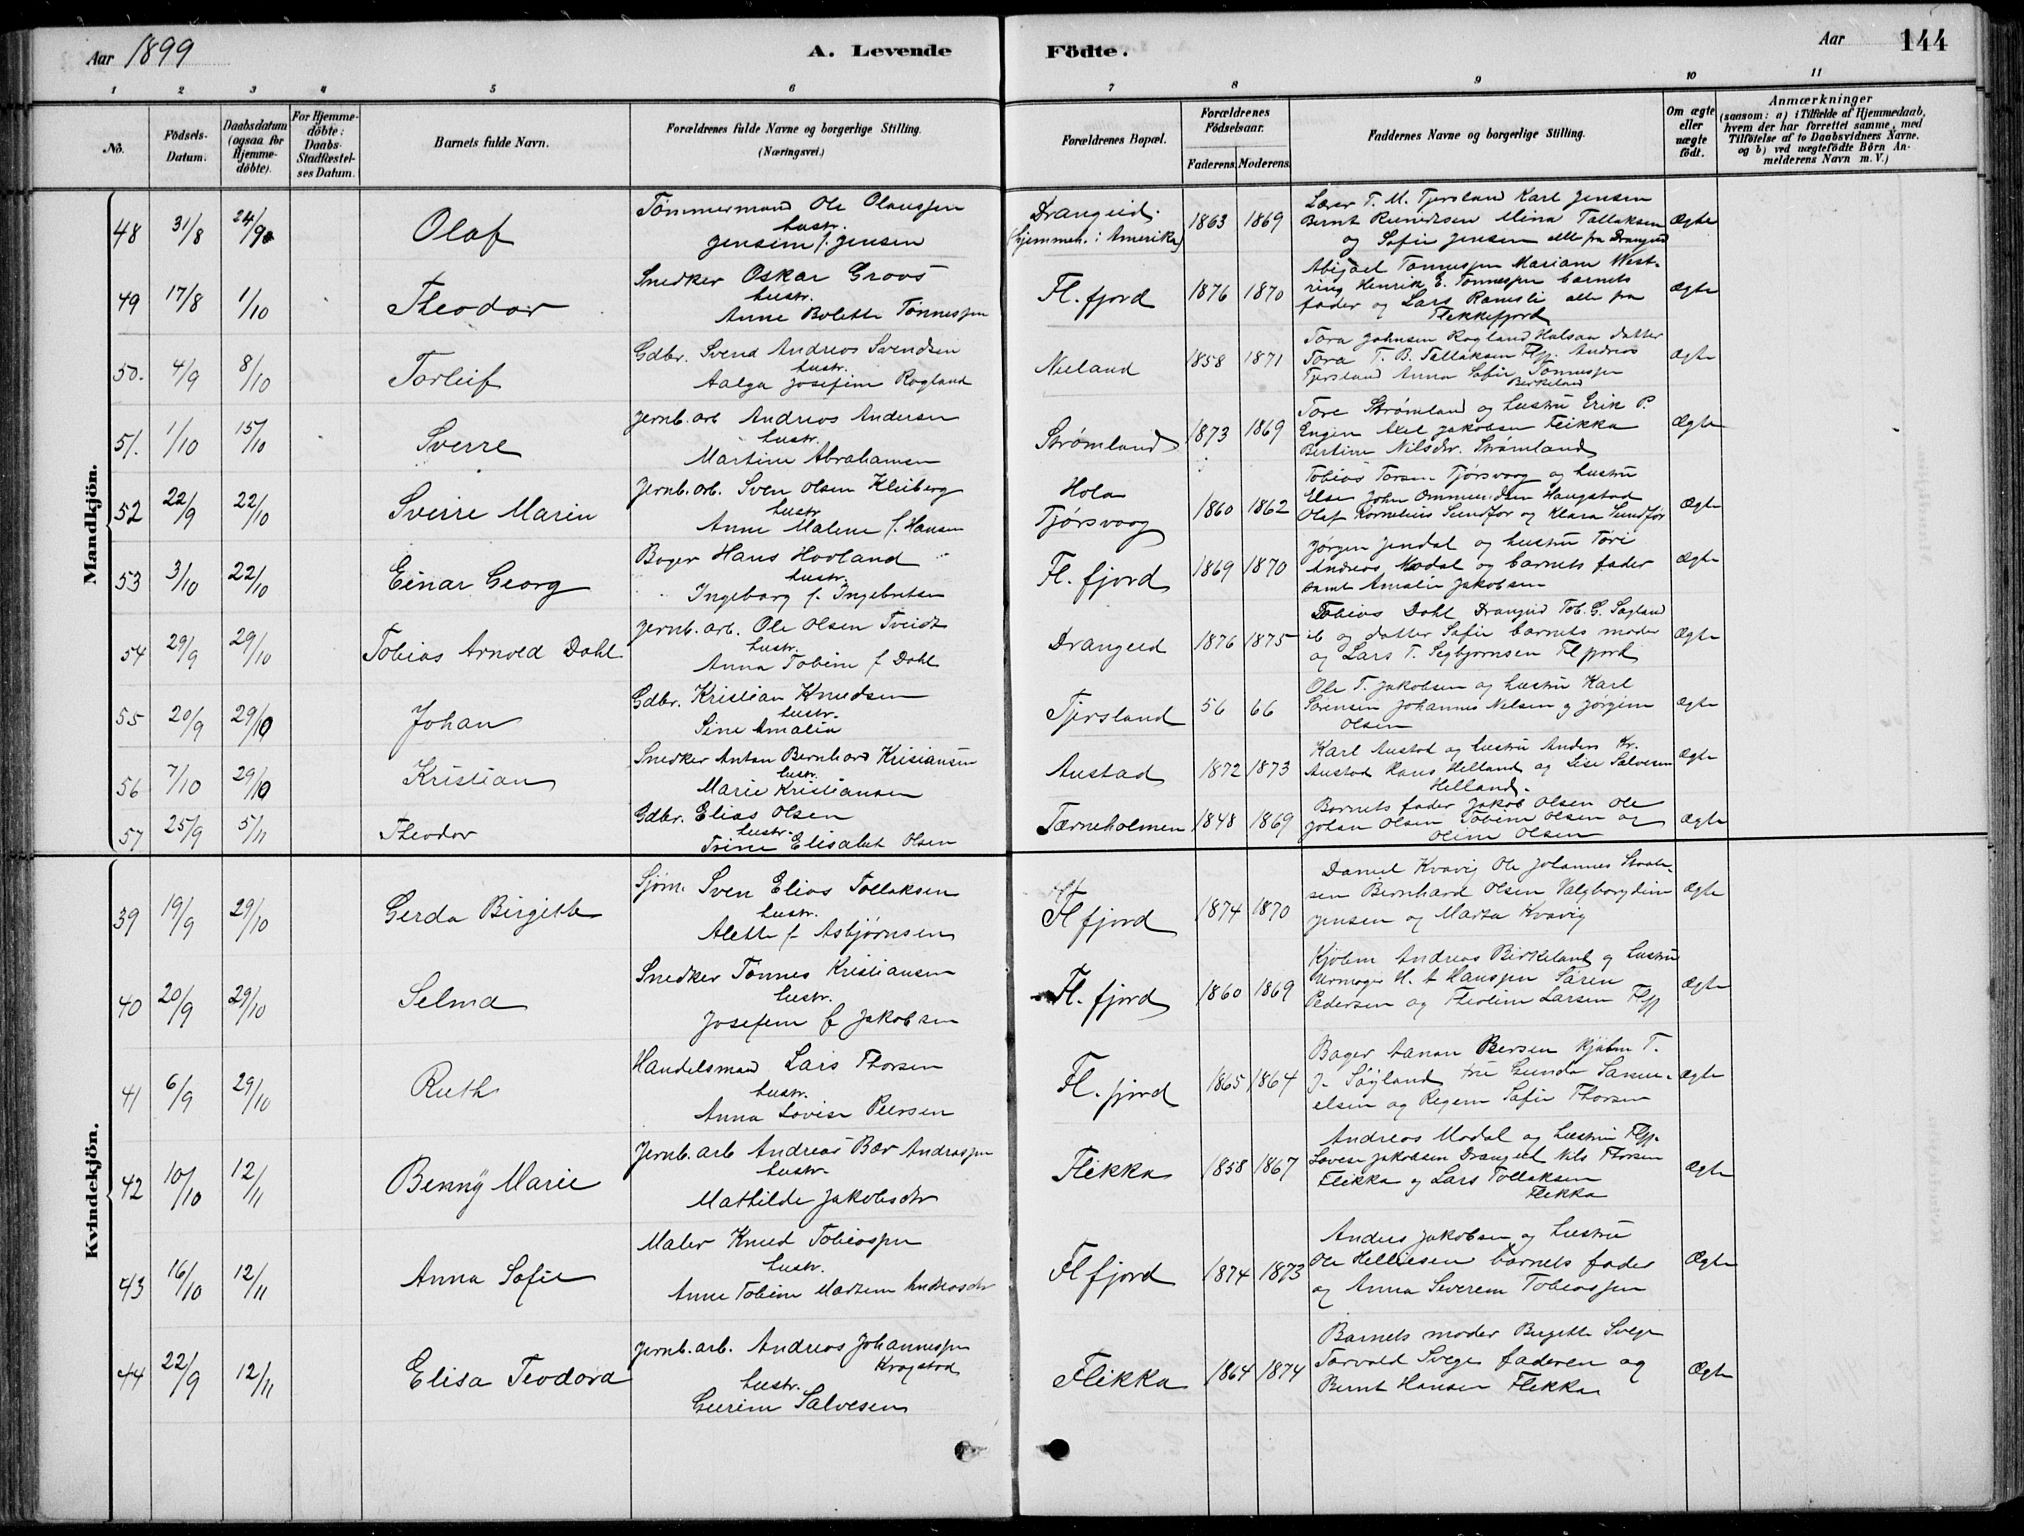 Aar 1899
A. Levende
Födte.
Aar
144
1 2 3 4 5 6 7 8 9 10 11
No.
Födsels-Datum.
Daabsdatum (ogsaa for Hjemme-döbte).
For Hjemme-döbte: Daabs-Stadfæstel-ses Datum.
Barnets fulde Navn.
Forældrenes fulde Navne og borgerlige Stilling.
(Næringsvei.)
Forældrenes Bopæl.
Forældrenes Födselsaar.
Faderens. Moderens.
Faddernes Navne og borgerlige Stilling.
Om ægte eller uægte födt.
Anmærkninger
(saasom: a) i Tilfælde af Hjemmedaab, hvem der har forrettet samme, med Tilföielse af to Daabsvidners Navne. og b) ved uægtefödte Börn Anmelderens Navn m. V.)
Mandkjön.
48 31/8 24/9 Olaf
Tömmermand Ole Olaussen
hustr.
Jensine f. Jensen
Drangeid.
(hjemmeh. i Amerika)
1863 1869
Lærer T. M. Tjersland Karl Jensen
Bernt Reinertsen Mina Tallaksen
og Sofie Jensen alle fra Drangeid
Ægte
49 17/8 1/10 Theodor
Snedker Oskar Groos
hustr.
Anne Bolette Tönnessen
Fl. fjord
1876 1870
Abigael Tönnessen Mariane West-
ring Henrik E. Tönnessen barnets
fader og Lars Ramsli alle fra
Flekkefjord
Ægte
50. 4/9 8/10 Torleif
Gdbr. Svend Andreas Svendsen
hustr.
Aalga Josefine Rogland
Nieland
1858 1871
Tora Johnsen Rogland Halsaa datter
Tora T. B. Tallaksen Flfj. Andreas
Tjersland Anna Sofie Tönnessen
Birkeland
Ægte
51. 1/10 15/10 Sverre
Jernb. arb Andreas Andersen
hustr.
Martine Abrahamsen
Strömland
1873 1869
Tore Strömland og hustru Erik P.
Engen Axel Jakobsen Fleikka
Bertine Nilsdtr. Strömland
Ægte
52 22/9 22/10 Sverre Marin
Jernb. arb. Sven Olsen Kleiberg
hustr.
Anne Malene f. Hansen
Hola
Tjörsvaag
1860 1862
Tobias Torsen Tjörsvaag og hustru
Else John Ommundsen Haugstad
Olaf Kornelius Sundför og Klara Sundför
Ægte
53 3/10 22/10 Einar Georg
Bager Hans Hovland
hustr.
Ingeborg f. Ingebretsen
Fl. fjord
1869 1870
Jörgen Jendal og hustru Tore
Andreas Modal og barnets fader
samt Amalie Jakobsen
Ægte
54 29/9 29/10 Tobias Arnold Dahl
Jernb. arb. Ole Olsen Tveidt
hustr.
Anna Tobine f Dahl
Drangeid
1876 1875
Tobias Dahl Drangeid Tob. G. Sagland
ib og datter Sofie barnets moder
og Lars T. Segbjörnsen Fl fjord
Ægte
55 20/9 29/10 Johan
Gdbr. Kristian Knudsen
hustr.
Sine Amalia
Tjersland
56 66
Ole T. Jakobsen og hustru Karl
Sörensen Johannes Nelsen og Jörgine
Olsen
Ægte
56 7/10 29/10 Kristian
Snedker Anton Bernhard Kristiansen
hustr.
Marie Kristiansen
Austad
1872 1873
Karl Austad og hustru Anders Kr.
Austad Hans Helland og Lise Salvesen
Helland.
Ægte
57 25/9 5/11 Theodor
Gdbr. Elias Olsen
hustr.
Trine Elisabet Olsen
Tærneholmen
1848 1869
Barnets fader Jakob Olsen Ole
Johan Olsen Tobine Olsen og
Oline Olsen
Ægte
Kvindekjön.
39 19/9 29/10 Gerda Birgitte
Sjöm. Sven Elias Tollaksen
hustr.
Alette f Asbjörnsen
Fl fjord
1874 1870
Daniel Kvavig Ole Johannes
sen Bernhard Olsen Valgborg
Jensen og Marta Kvavig
Ægte
40 20/9 29/10 Selma
Snedker Tönnes Kristiansen
hustr.
Josefine f Jakobsen
Fl. fjord
1860 1869
Kjöbm Andreas Birkeland og hustru
Urmager H. A Hanssen Sören
Pedersen og Theoline Larsen Flfj
Ægte
41 6/9 29/10 Ruth
Handelsmand Lars Thorsen
hustr.
Anna Lovise Peersen
Fl. fjord
1865 1864
Bager Hanan Peersen Kjöbm T.
J. Söyland fru Gunda Samu-
elsen og Regine Sofie Thorsen
Ægte
42 10/10 12/11 Benny Marie
Jernb. arb Andreas Bær Andreassen
hustr.
Mathilde Jakobsdtr
Flikka
1858 1867
Andreas Modal og hustru Flfj.
Lovise Jakobsen Drangeid Nils Thorsen
Flikka og Lars Tollaksen
Flikka
Ægte
43 16/10 12/11 Anna Sofie
Maler Knud Tobiassen
hustr.
Anne Tobine Martine Andreasdtr
Fl fjord
1874 1873
Anders Jakobsen og hustru
Ole Helliesen barnets fader
og Anna Severine Tobiassen
Ægte
44 22/9 12/11 Elisa Teodora
Jernb. arb. Andreas Johannessen
Kragstad
hustr.
Gurine Salvesen
Flikka
1864 1874
Barnets moder Birgitte Svege
Torvald Svege faderen og
Bernt Hansen Flikka
Ægte